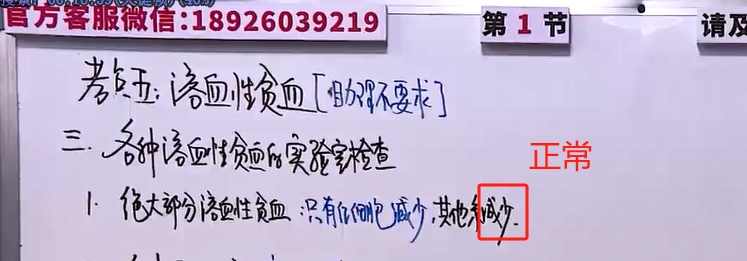 官方客服微信:18926039219
第 1 节
请及
考点五:溶血性贫血[助理不要求]
三. 各种溶血性贫血的实验室检查
正常
1. 绝大部分溶血性贫血:只有红细胞减少,其他系减少.